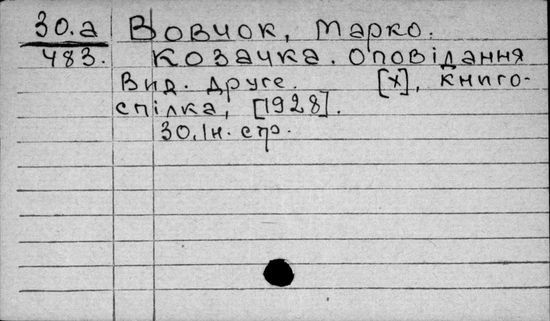 30.а Вовчок, Марко.
483. Козачка. Оповідання
Вид. друге. [Х], книго-
спілка, [1928].
30, Ін. стр.